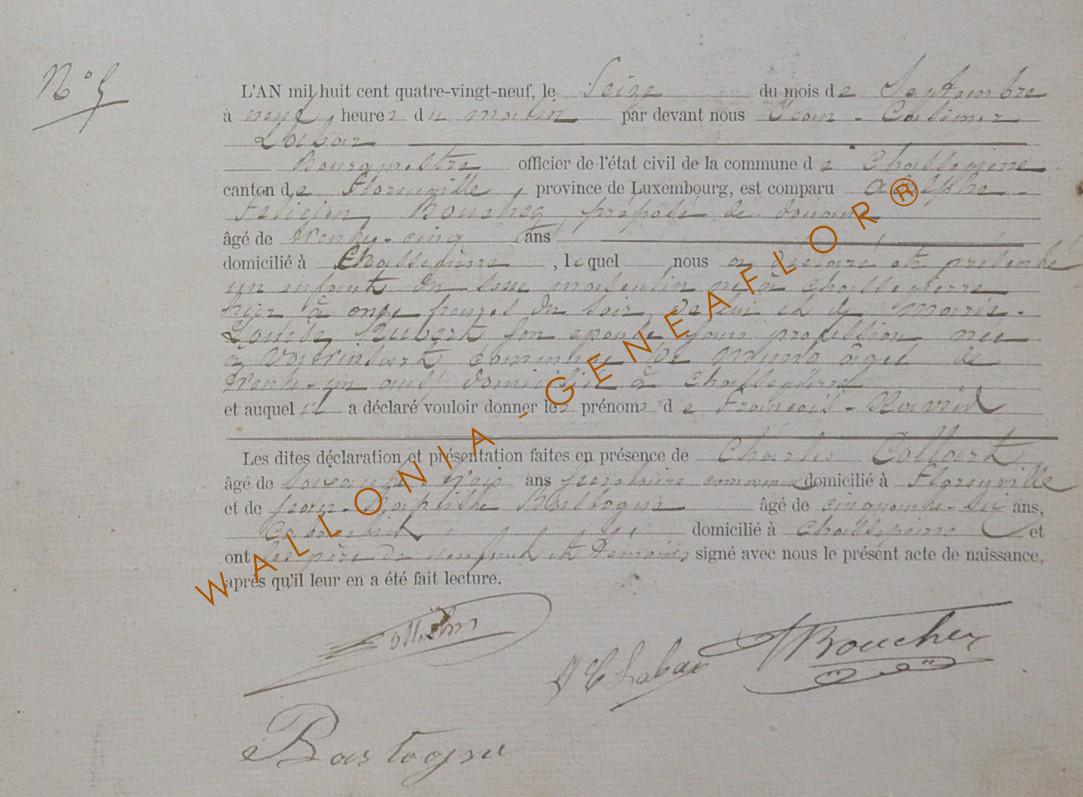 N° 5
L'AN mil huit cent quatre-vingt-neuf, le Seize du mois de Septembre
à neuf heures du matin par devant nous Jean - Casimir
Labar
Bourgmestre officier de l'état civil de la commune de Chassepierre
canton de Florenville, province de Luxembourg, est comparu Adolphe
Félicien Boucher, préposé de douane
âgé de trente-cinq ans
domicilié à Chassepierre, lequel nous a déclaré et présenté
un enfant du sexe masculin né à Chassepierre
hier à onze heures du soir, de lui et de Marie-
Louise Hubert son épouse sans profession née
à commune de Muno âgée de
trente-un ans domiciliée à Chassepierre
et auquel il a déclaré vouloir donner les prénoms de François -
Les dites déclaration et présentation faites en présence de Charles Collart
âgé de soixante trois ans secrétaire communal domicilié à Florenville
et de Jean-Baptiste Bastogne âgé de cinquante-six ans,
domicilié à Chassepierre et
ont les père de l'enfant et témoins signé avec nous le présent acte de naissance,
après qu'il leur en a été fait lecture.
JC Labar
Boucher
Bastogne
WALLONIA - GENEAFLOR®